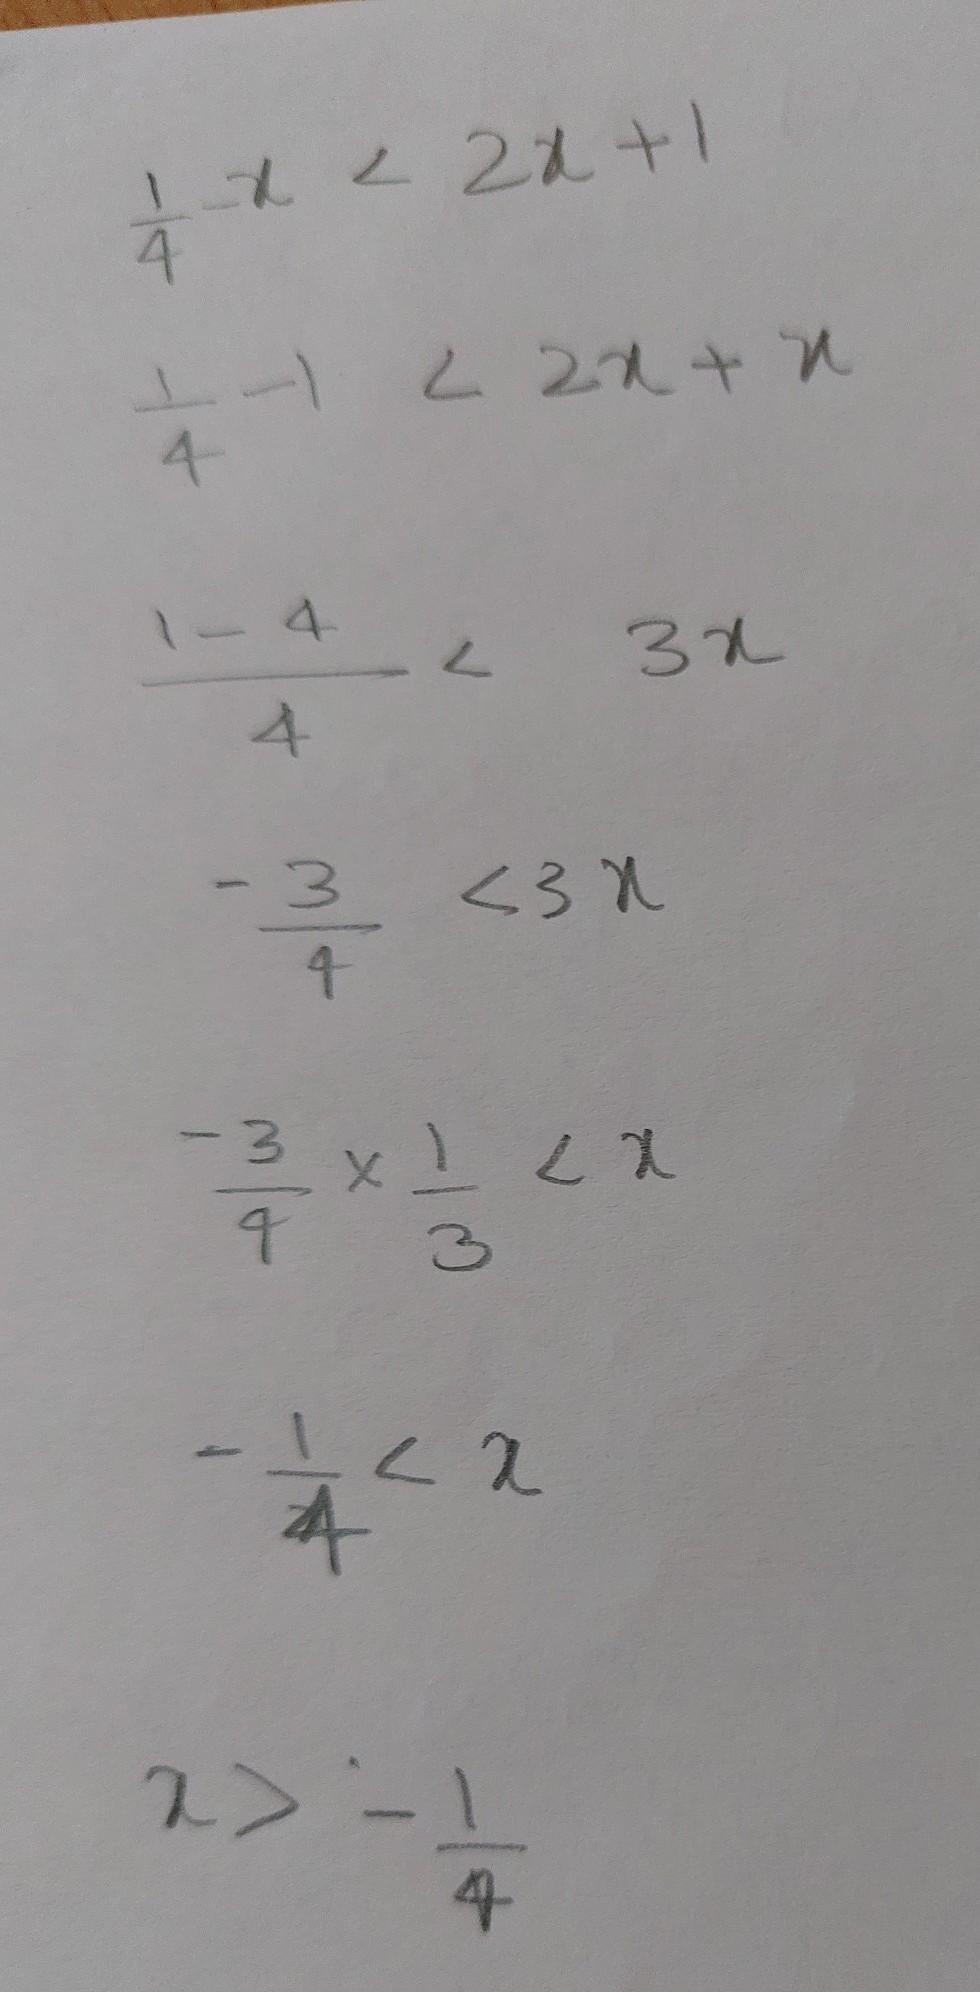 1/4 - x < 2x + 1
1/4 - 1 < 2x + x
(1 - 4)/4 < 3x
-3/4 < 3x
-3/4 × 1/3 < x
-1/4 < x
x > -1/4